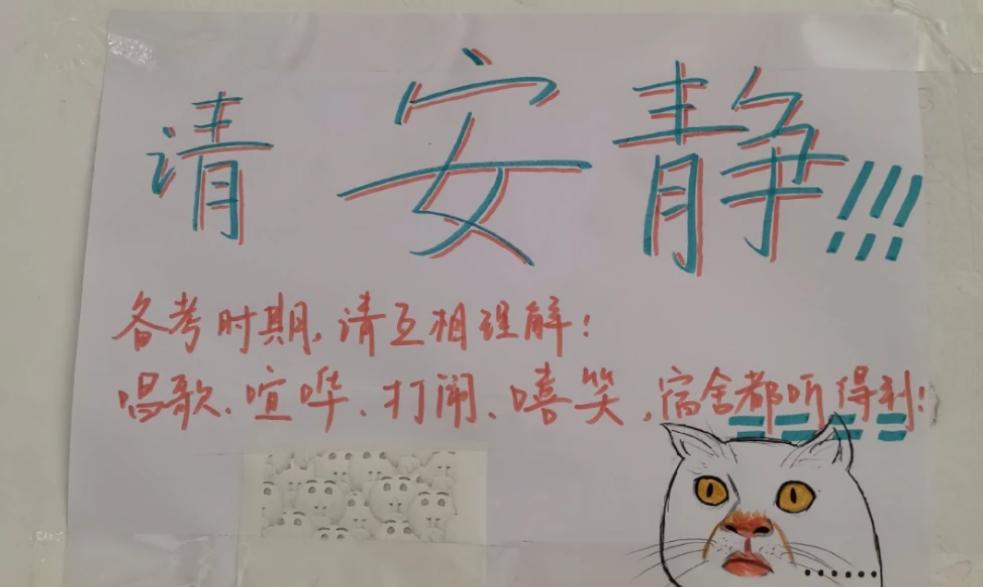 请安静!!!
备考时期,请互相理解!
唱歌、喧哗、打闹、嘻笑,宿舍都听得到!
......